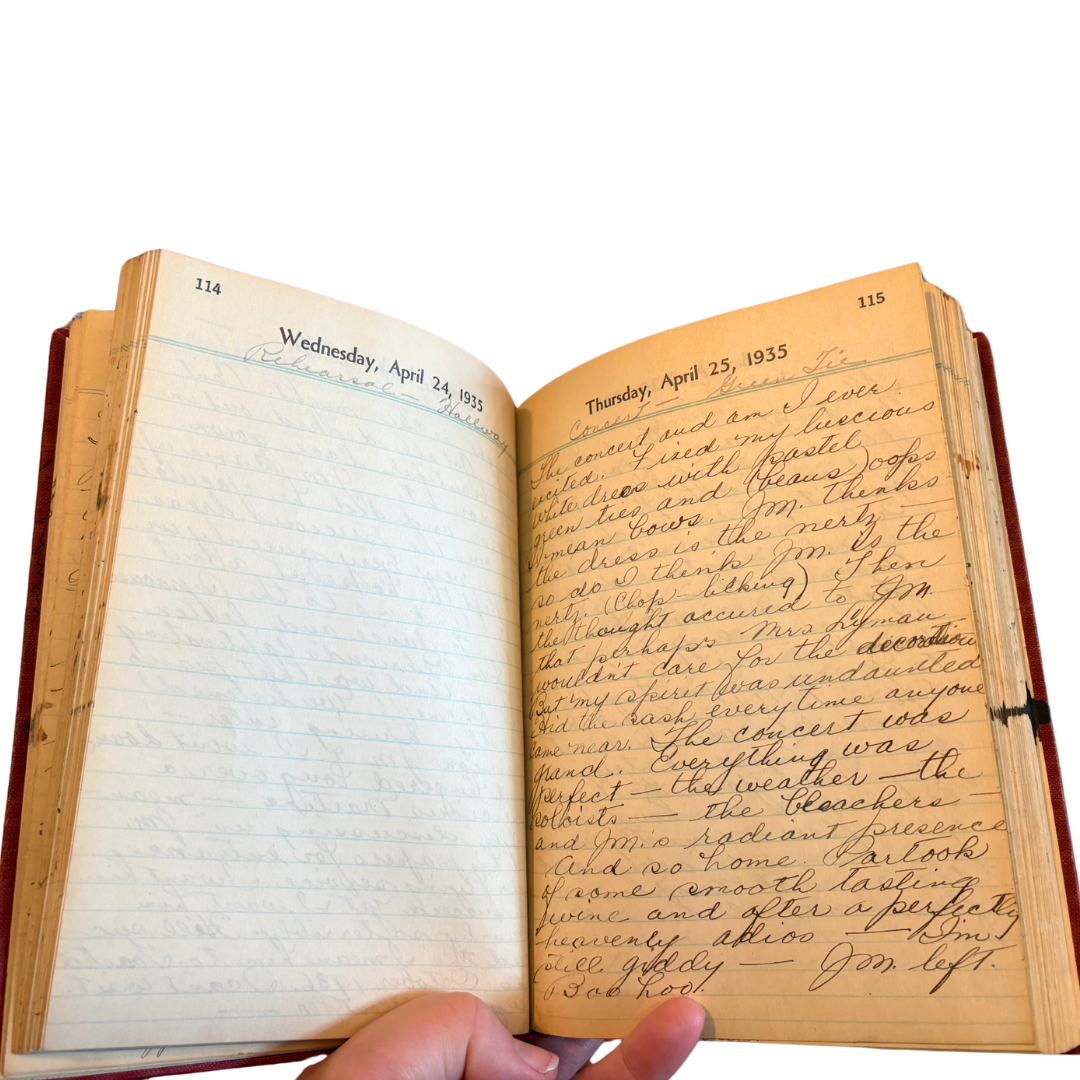 114
Wednesday, April 24, 1935
Rehearsal — Hallway
115
Thursday, April 25, 1935
Concert — Green Tie
The concert and am I ever
excited. Fixed my luscious
white dress with pastel
green ties and (beaus) oops
I mean bows. J.M. thinks
the dress is the nertz —
so do I think J.M. is the
nertz. (Chop licking) Then
the thought occured to J.M.
that perhaps Mrs Lyman
wouldn't care for the decoration
But my spirit was undaunted
Hid the sash every time anyone
came near. The concert was
grand. Everything was
perfect — the weather — the
soloists — the bleachers —
and J.M.'s radiant presence
And so home. Partook
of some smooth tasting
wine and after a perfectly
heavenly adios — I'm
still giddy — J.M. left.
Boo hoo!